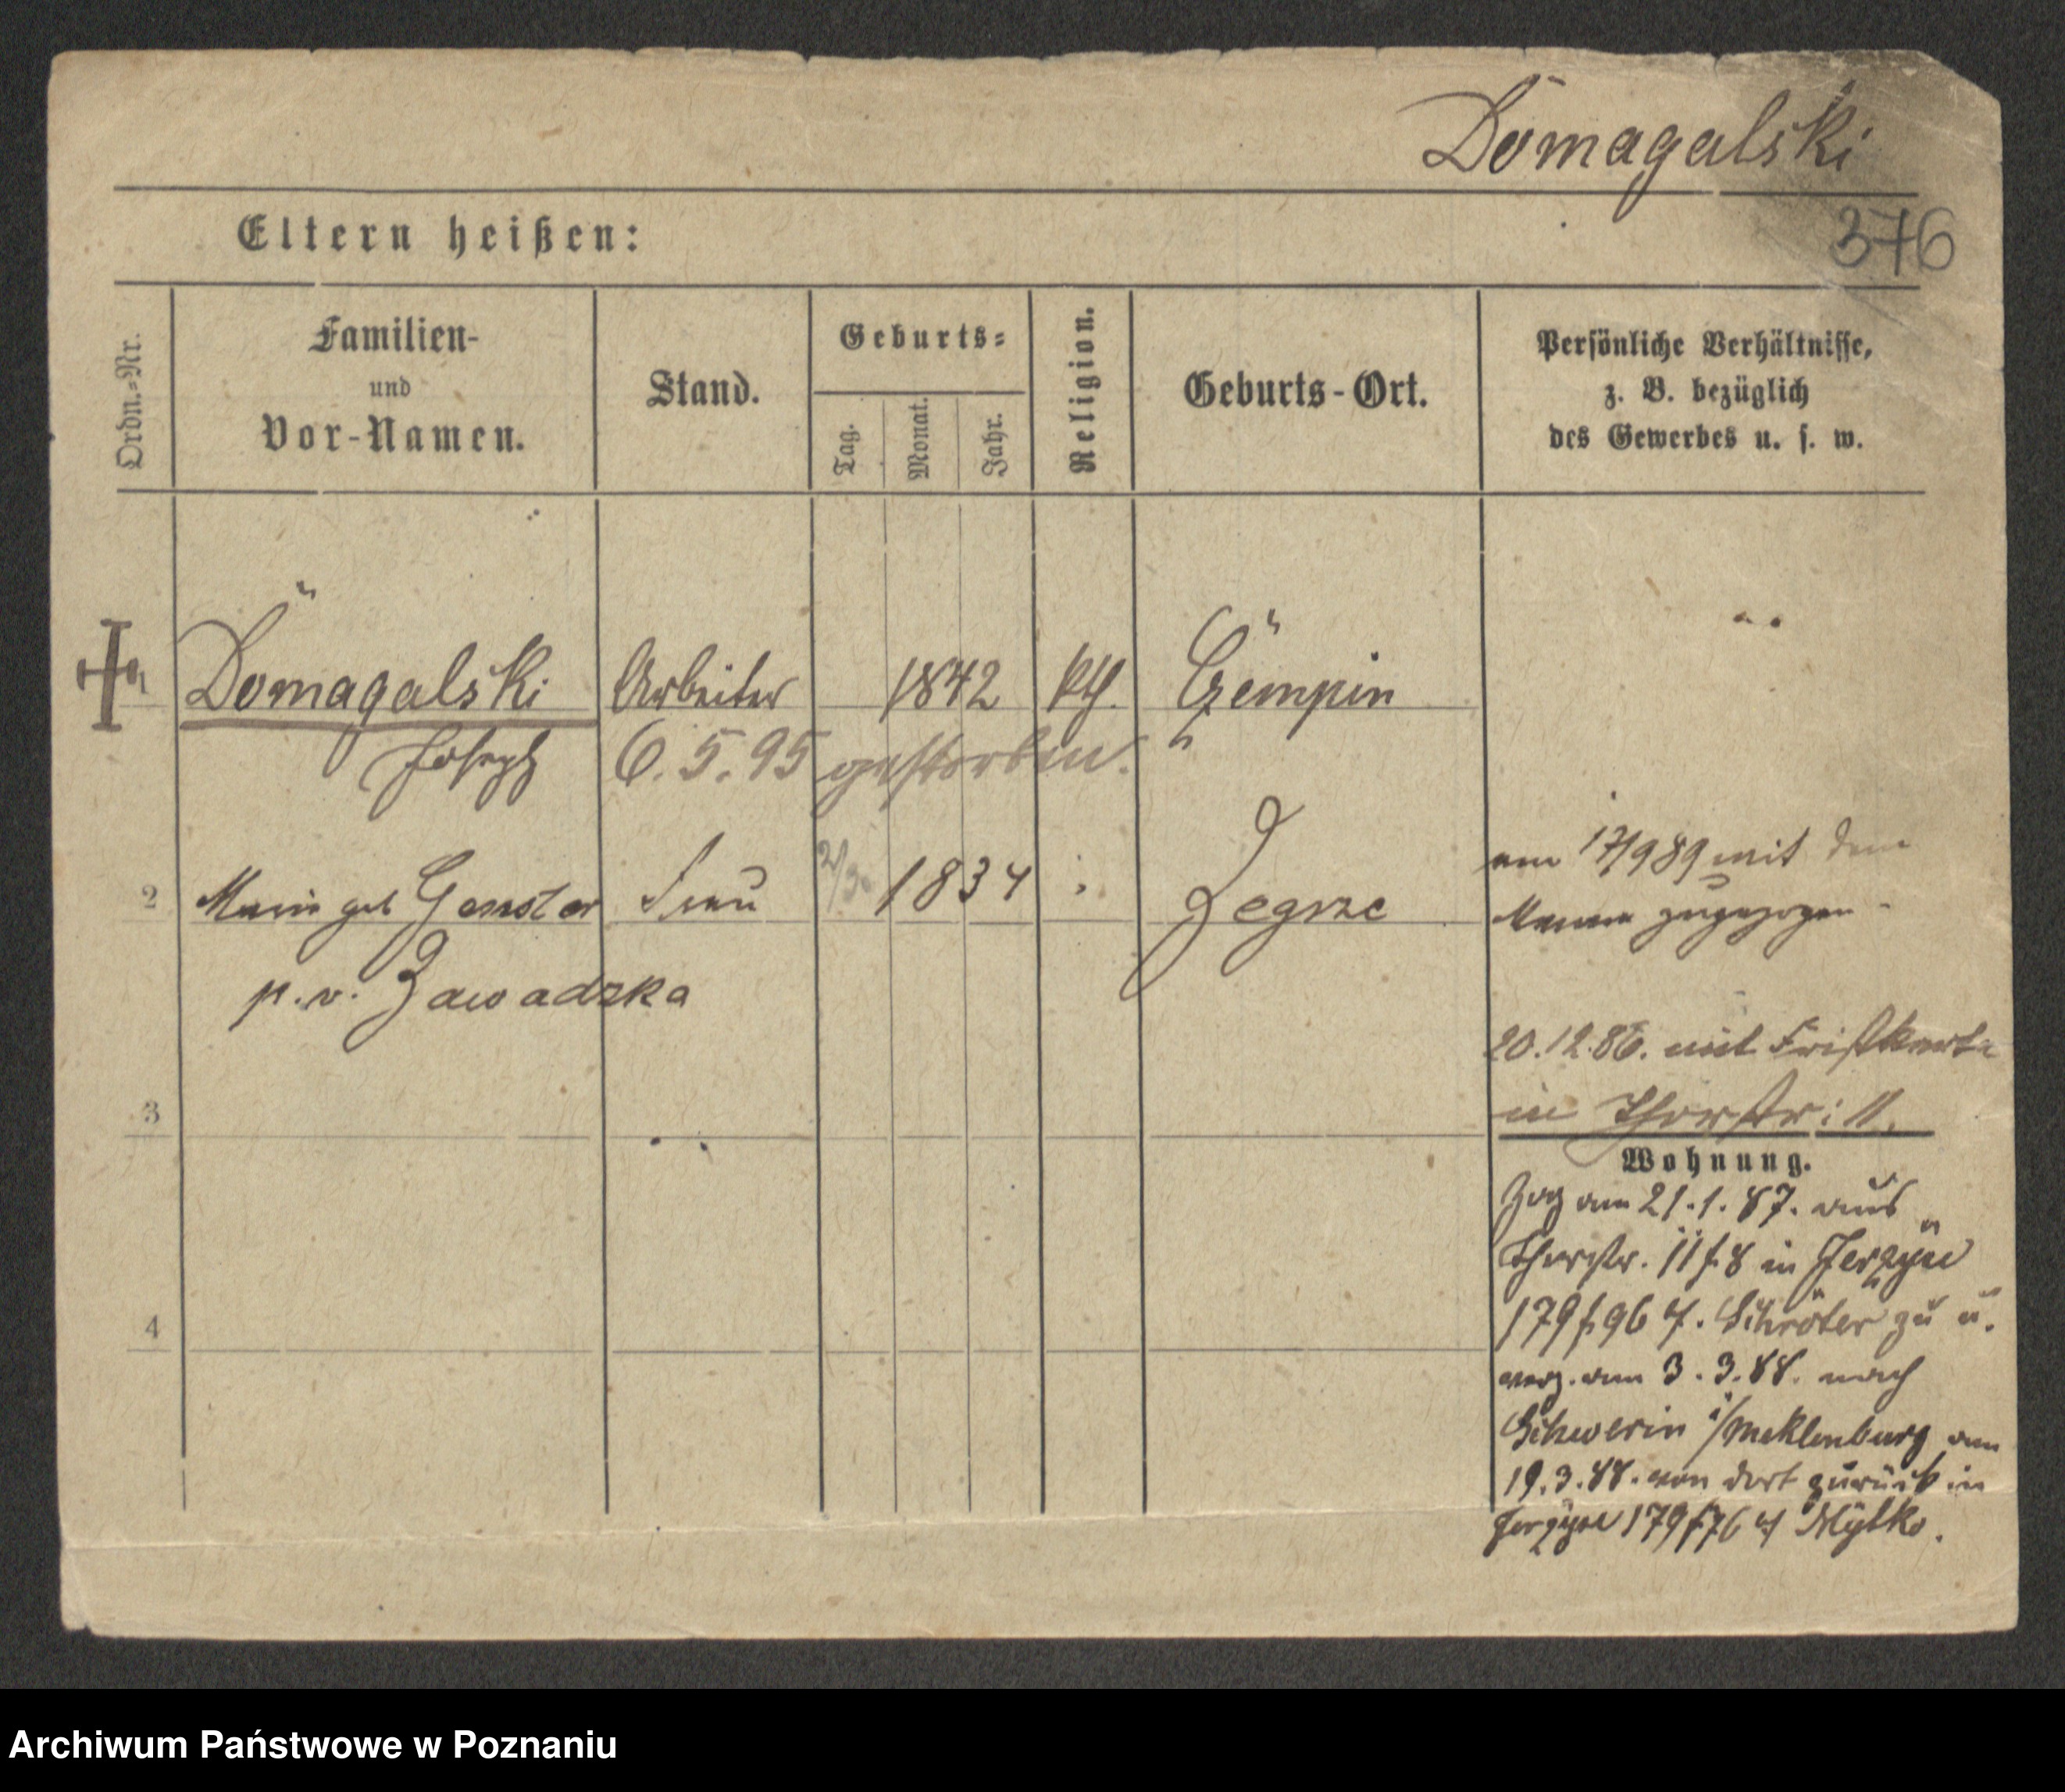 Domagalski
376
Eltern heißen:
Ordn.-Nr.
Familien-
und
Vor-Namen.
Stand.
Geburts-
Tag.
Monat.
Jahr.
Religion.
Geburts-Ort.
Persönliche Verhältnisse,
z. B. bezüglich
des Gewerbes u. s. w.
1 Domagalski Arbeiter 1842 kth. Czempin
Joseph 6.5.95 gestorben.
2 Marie geb Genster Frau 1834 Zegrze
p. v. Zawadzka
am 17/9 89 mit dem
Manne zugezogen
20.12.86. mit Fristkarte
in Thorstr: 11.
3
Wohnung.
Zog am 21.1.87. aus
Thorstr. 11 f. 8 in Jerzyce
179 f. 96 Schröter zu u.
4
verz. am 3.3.88. nach
Schwerin i/Meklenburg am
19.3.88. von dort zurück in
Jerzyce 179 f 76 Mytko.
Archiwum Państwowe w Poznaniu